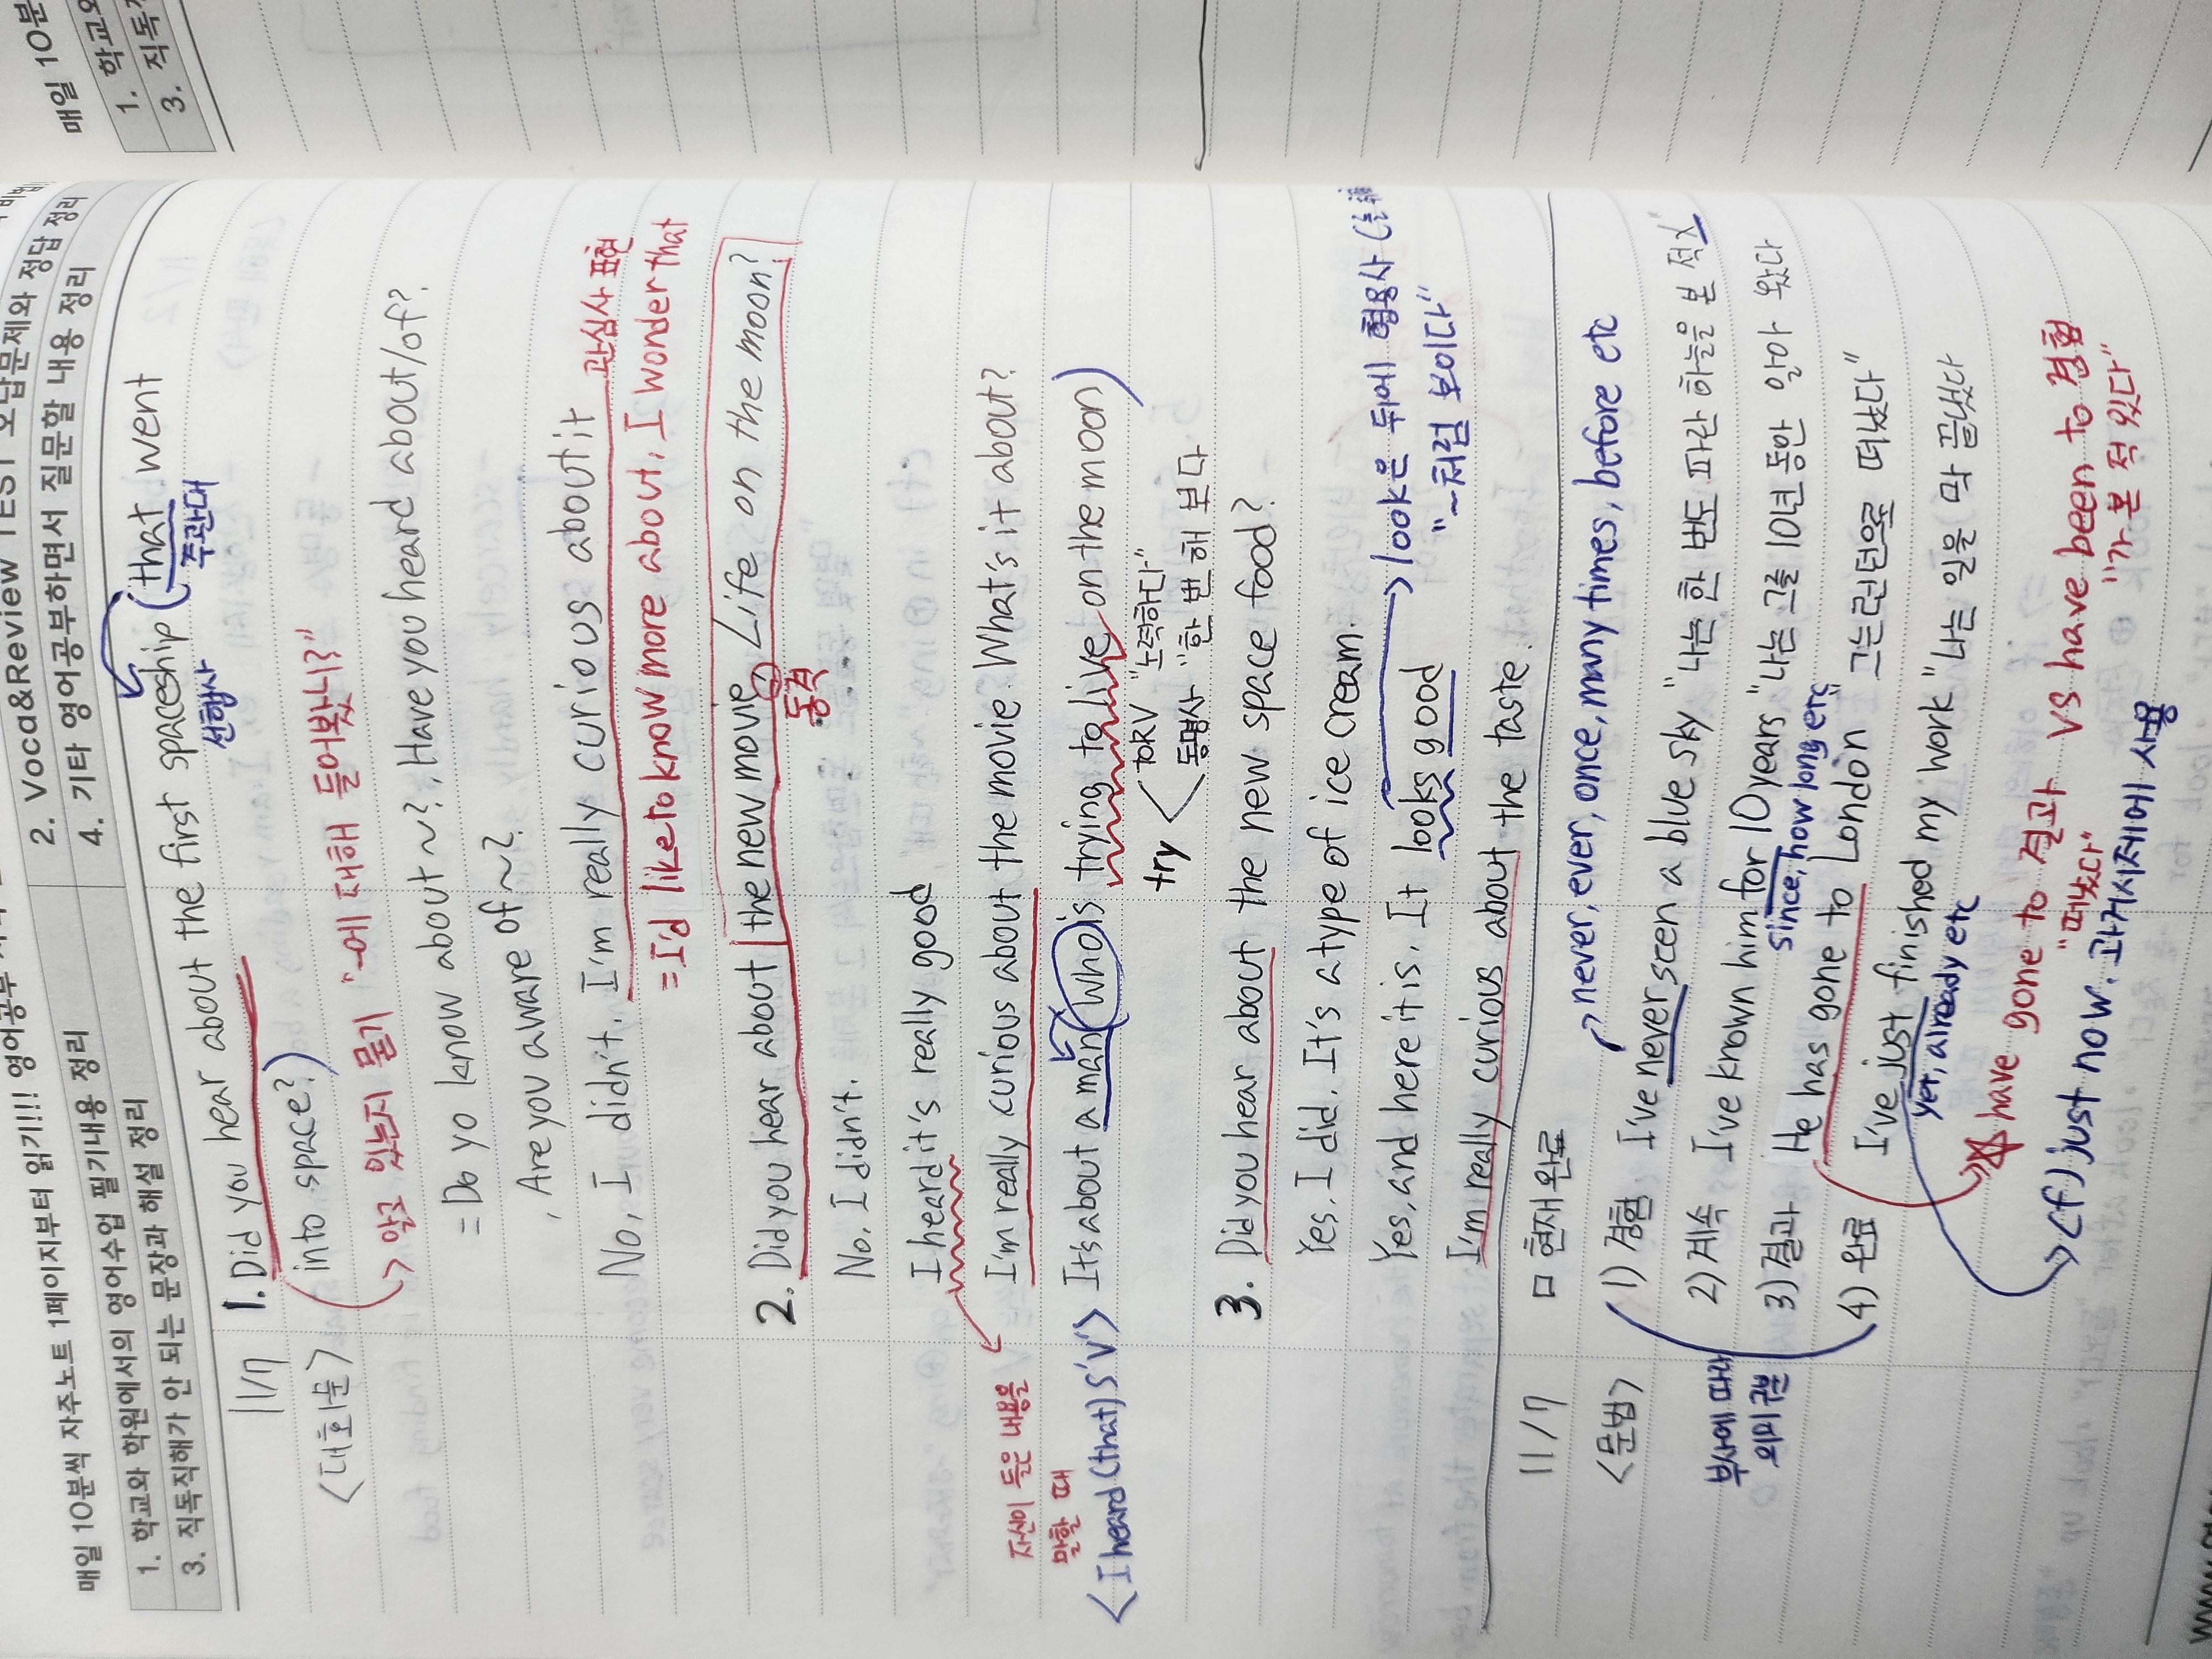 매일 10분씩 자주노트 1페이지부터 읽기!!! 영어공부
1. 학교와 학원에서의 영어수업 필기내용 정리
2. Voca&Review TEST 오답문제와 정답 정리
3. 직독직해가 안 되는 문장과 해설 정리
4. 기타 영어공부하면서 질문할 내용 정리
11/7
<대화문>
1. Did you hear about the first spaceship (that went
선행사
주관대
into space?)
알고 있는지 묻기 "~에 대해 들어봤니?"
= Do yo know about ~?, Have you heard about/of?
, Are you aware of ~?
No, I didn't. I'm really curious about it
관심사 표현
= I'd like to know more about, I wonder that
2. Did you hear about the new movie, Life on the moon?
동격
No, I didn't.
I heard it's really good
I'm really curious about the movie. What's it about?
자신이 들은 내용을
말할 때
<I heard (that) S'V'>
It's about a man (who is trying to live on the moon)
try < toRV "노력하다"
동명사 "한 번 해 보다
3. Did you hear about the new space food?
Yes, I did. It's a type of ice cream.
Yes, and here it is. It looks good
→ look은 뒤에 형용사
"~처럼 보이다"
I'm really curious about the taste.
11/7
<문법>
□ 현재완료
never, ever, once, many times, before etc
1) 경험 I've never seen a blue sky "나는 한 번도 파란 하늘을 본 적X"
부사에 따라
의미 구별
2) 계속 I've known him for 10 years "나는 그를 10년 동안 알아 왔다
since, how long etc
3) 결과 He has gone to London "그는 런던으로 떠났다"
4) 완료 I've just finished my work "나는 일을 막 끝냈다
yet, already etc
☆ have gone to 결과 vs have been to 경험
"떠났다"
"가 본 적 있다"
→ cf) just now. 과거시제에 사용
매일 10분
1. 학교와
3. 직독직